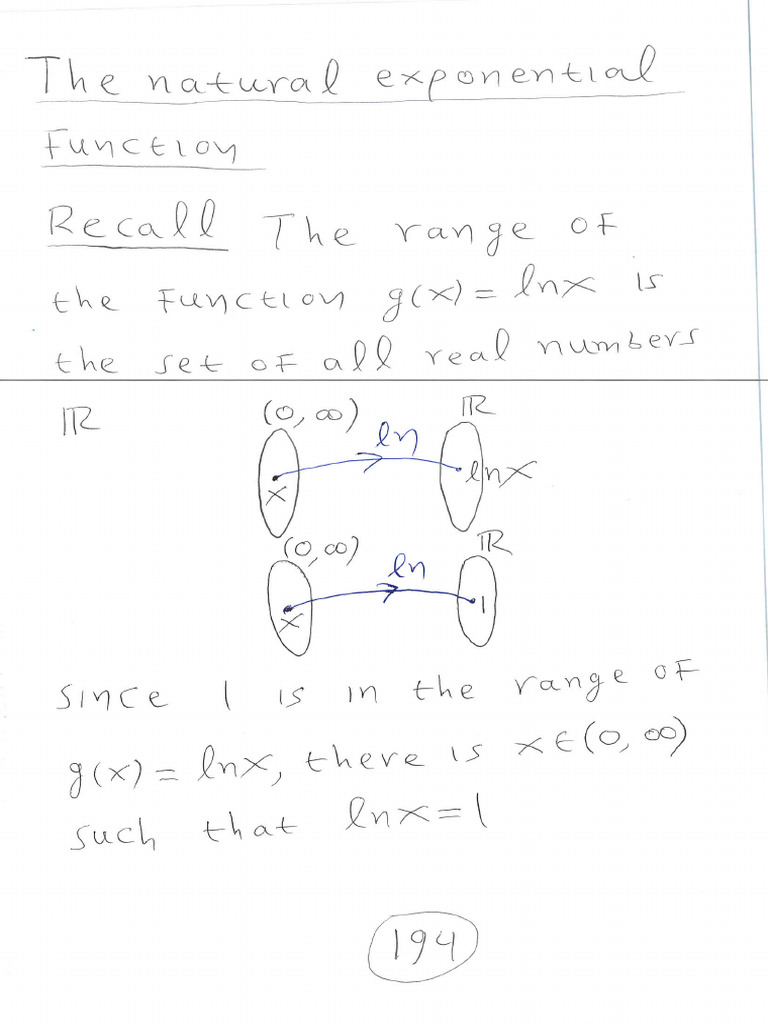 The natural exponential
Function
Recall The range of
the function g(x) = lnx is
the set of all real numbers
ℝ (0, ∞) ℝ
ln
x lnx
(0, ∞) ℝ
ln
x 1
since 1 is in the range of
g(x) = lnx, there is x∈(0, ∞)
such that lnx=1
194